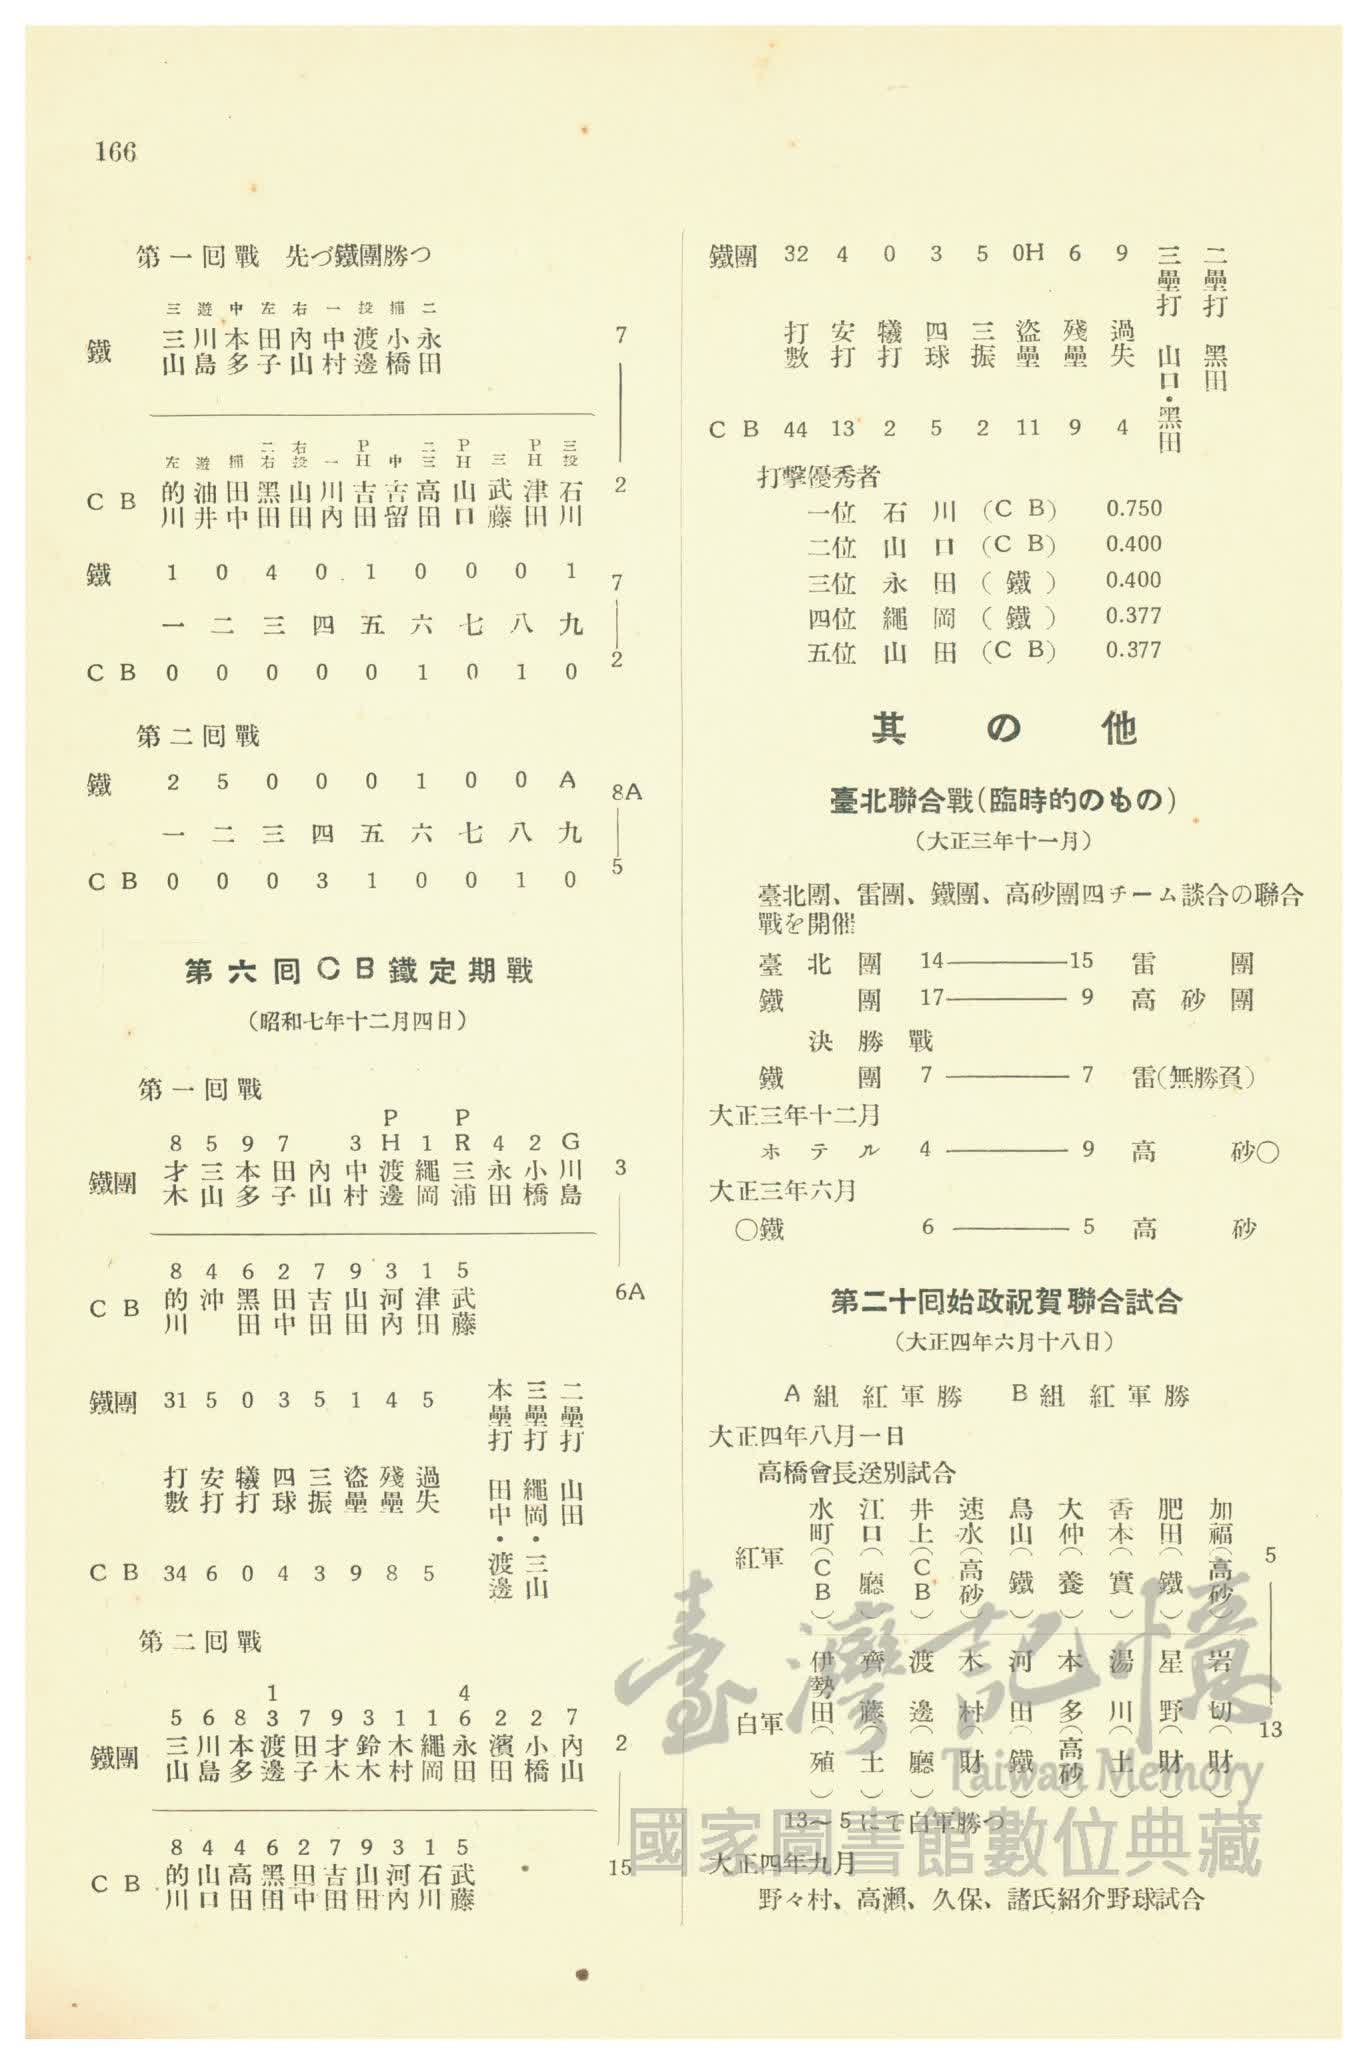 166
第一回戰　先づ鐵團勝つ
三 遊 中 左 右 一 投 捕 二
鐵　三山 川島 本多 田子 內山 中村 渡邊 小橋 永田　7
左 遊 捕 二右 右投 一 PH 中 二三 PH 三 PH 三投
C B　的川 油井 田中 黑田 山田 川內 吉田 吉留 高田 山口 武藤 津田 石川　2
鐵　1 0 4 0 1 0 0 0 1　7
一 二 三 四 五 六 七 八 九
C B　0 0 0 0 0 1 0 1 0　2
第二回戰
鐵　2 5 0 0 0 1 0 0 A　8A
一 二 三 四 五 六 七 八 九
C B　0 0 0 3 1 0 0 1 0　5
第六回CB鐵定期戰
（昭和七年十二月四日）
第一回戰
8 5 9 7 3 PH 1 PR 4 2 G
鐵團　才木 三山 本多 田子 內山 中村 渡邊 繩岡 三浦 永田 小橋 川島　3
8 4 6 2 7 9 3 1 5
C B　的川 沖 黑田 田中 吉田 山田 河內 津田 武藤　6A
鐵團　31 5 0 3 5 1 4 5
打數 安打 犠打 四球 三振 盜壘 殘壘 過失
C B　34 6 0 4 3 9 8 5
二壘打　山田
三壘打　繩岡・三山
本壘打　田中・渡邊
第二回戰
5 6 8 13 7 9 3 1 1 46 2 2 7
鐵團　三山 川島 本多 渡邊 田子 才木 鈴木 木村 繩岡 永田 濱田 小橋 內山　2
8 4 4 6 2 7 9 3 1 5
C B　的川 山口 高田 黑田 田中 吉田 山田 河內 石川 武藤　15
鐵團　32 4 0 3 5 0H 6 9
打數 安打 犠打 四球 三振 盜壘 殘壘 過失
C B　44 13 2 5 2 11 9 4
二壘打　黑田
三壘打　山口・黑田
打擊優秀者
一位　石川（C B）　0.750
二位　山口（C B）　0.400
三位　永田（鐵）　0.400
四位　繩岡（鐵）　0.377
五位　山田（C B）　0.377
其の他
臺北聯合戰（臨時的のもの）
（大正三年十一月）
臺北團、雷團、鐵團、高砂團四チーム談合の聯合
戰を開催
臺北團　14―――15　雷團
鐵團　17―――9　高砂團
決勝戰
鐵團　7―――7　雷（無勝負）
大正三年十二月
ホテル　4―――9　高砂○
大正三年六月
○鐵　6―――5　高砂
第二十回始政祝賀聯合試合
（大正四年六月十八日）
A組　紅軍勝　B組　紅軍勝
大正四年八月一日
高橋會長送別試合
紅軍　水町（CB） 江口（廳） 井上（CB） 速水（高砂） 鳥山（鐵） 大仲（養） 香本（實） 肥田（鐵） 加福（高砂）　5
白軍　伊勢田（殖） 齊藤（土） 渡邊（廳） 木村（財） 河田（鐵） 本多（高砂） 湯川（土） 星野（財） 岩切（財）　13
13～5にて白軍勝つ
大正四年九月
野々村、高瀨、久保、諸氏紹介野球試合
臺灣記憶
Taiwan Memory
國家圖書館數位典藏